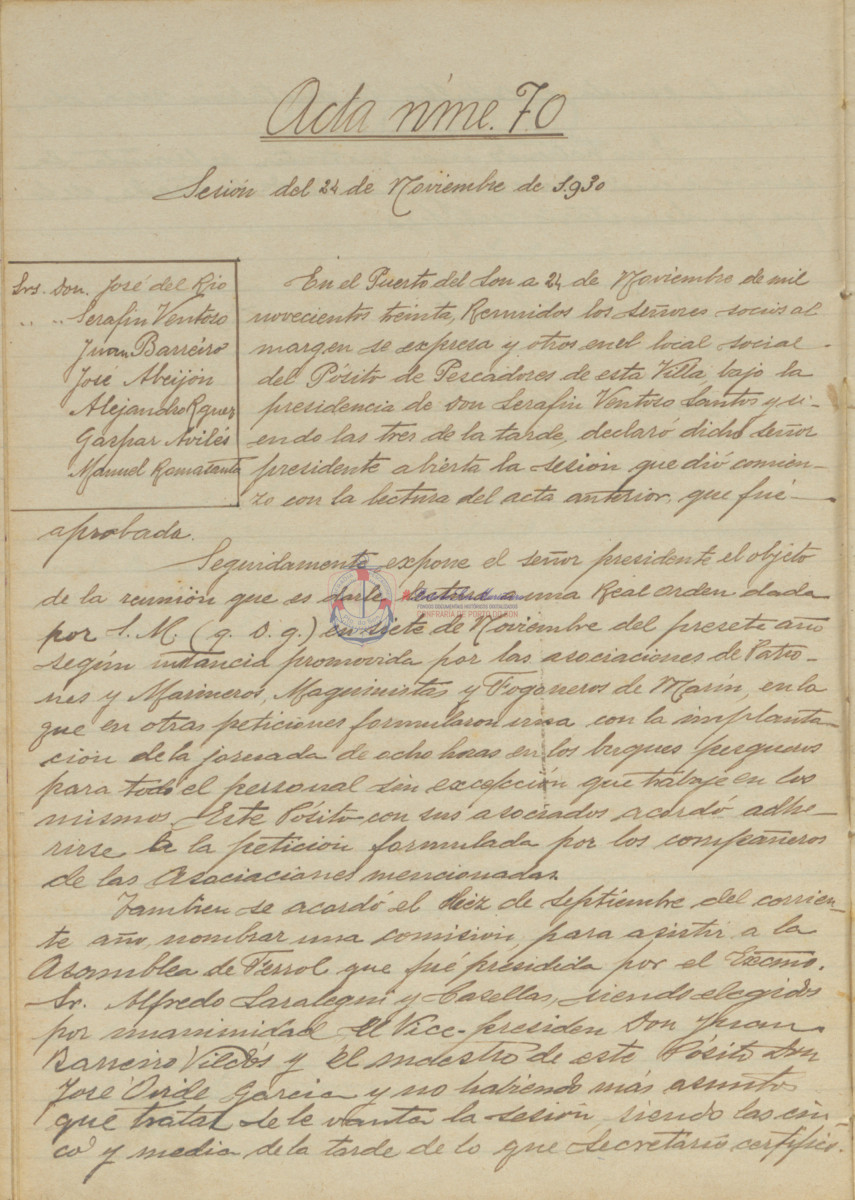 Acta núme. 70
Sesión del 24 de Noviembre de 1.930
Srs. Don. José del Rio
" " Serafin Ventoso
Juan Barreiro
José Abeijón
Alejandro Rguez
Gaspar Avilés
Manuel Romatanta
En el Puerto del Son a 24 de Noviembre de mil
novecientos treinta, Reunidos los señores socios al
margen se expresa y otros en el local social
del Pósito de Pescadores de esta Villa bajo la
presidencia de Don Serafin Ventoso Santos y si-
endo las tres de la tarde, declaró dicho señor
presidente abierta la sesión, que dió comien-
zo con la lectura del acta anterior, que fué
aprobada.
Seguidamente expone el señor presidente el objeto
de la reunión que es darle lectura a una Real Orden dada
por S. M. (q. D. g.) en siete de Noviembre del presete año
según instancia promovida por las asociaciones de Patro-
nes y Marineros, Maquinistas y Fogoneros de Marín, en la
que en otras peticiones formularon una con la implanta-
ción de la jornada de ocho horas en los buques pesqueros
para todo el personal sin excepción que trabaje en los
mismos. Este Pósito con sus asociados acordó adhe-
rirse a la petición formulada por los compañeros
de las Asociaciones mencionadas.
Tambien se acordó el diez de septiembre del corrien-
te año, nombrar una comisión, para asistir a la
Asamblea de Ferrol que fué presidida por el Excmo.
Sr. Alfredo Saralegui y Casellas, siendo elegidos
por unanimidad el Vice-presiden Don Juan
Barreiro y el maestro de este Pósito Don
José García y no habiendo más asuntos
que tratar se levanta la sesión, siendo las cin-
co y media de la tarde de lo que Secretario certifico.
CONFRARIA DE PORTO DO SON